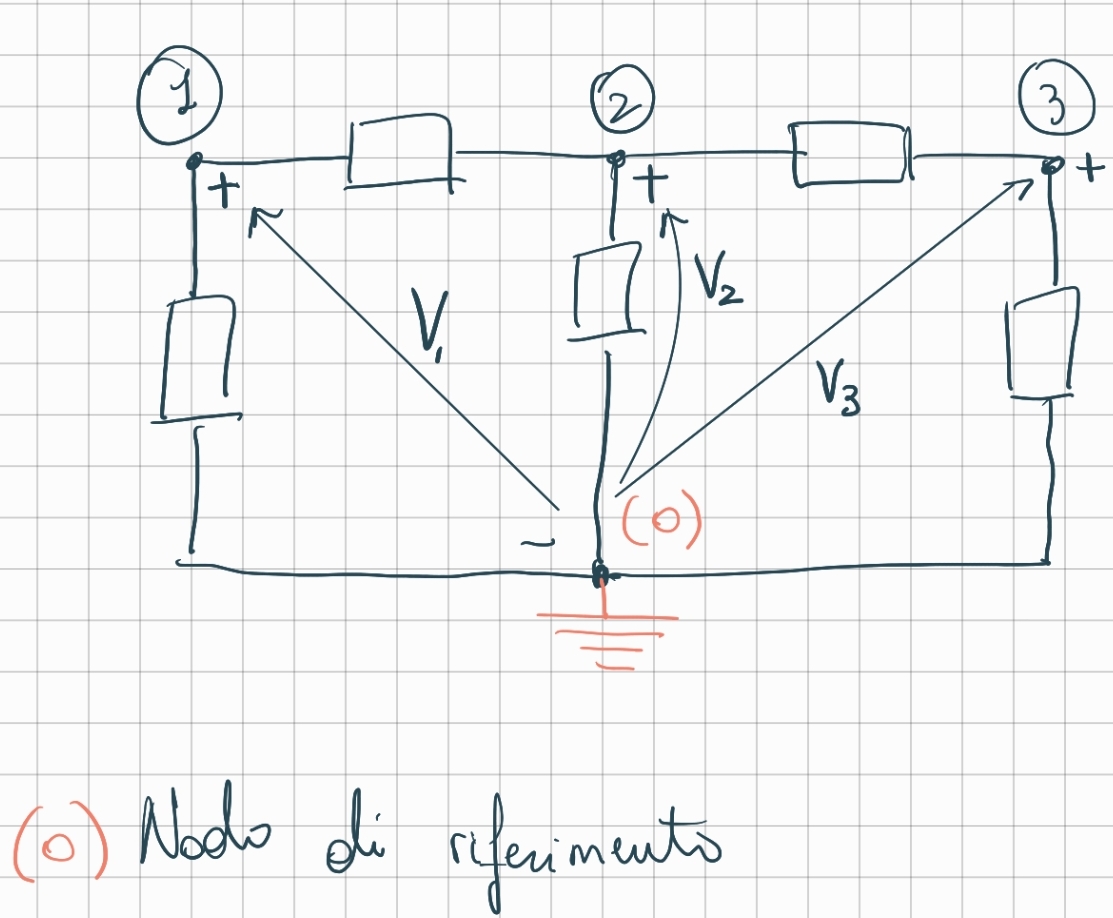 1 2 3
+ + +
V1 V2
V3
- (0)
(0) Nodo di riferimento